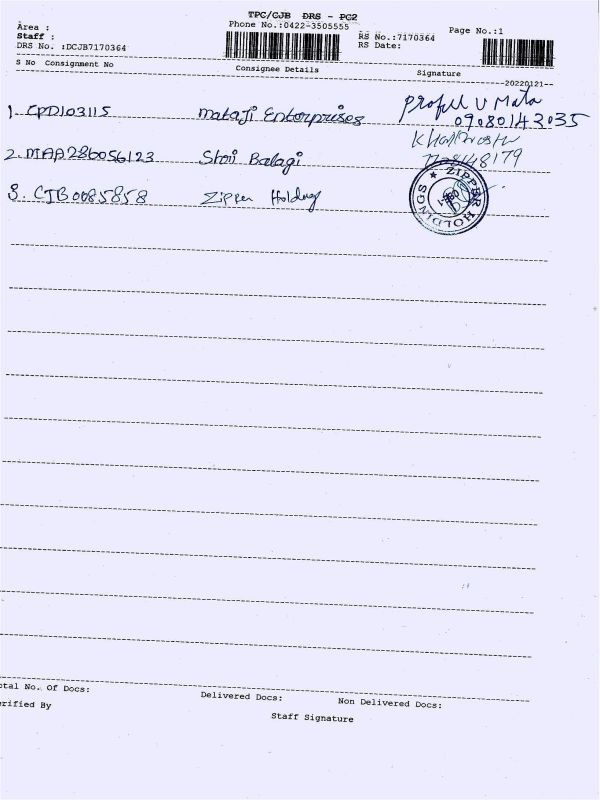 TPC/CJB DRS - PC2
Area :
Phone No.:0422-3505555
Page No.:1
Staff :
RS No.:7170364
DRS No. :DCJB7170364
RS Date:
S No Consignment No Consignee Details Signature
--20220121--
1. CPD103115 Mataji Enterprises Proful V Mata
09080142035
2. MAA286056123 Shri Balagi
3. CJB0085858 Zipper Holding
ZIPPER HOLDINGS
otal No. Of Docs: Delivered Docs: Non Delivered Docs:
erified By Staff Signature